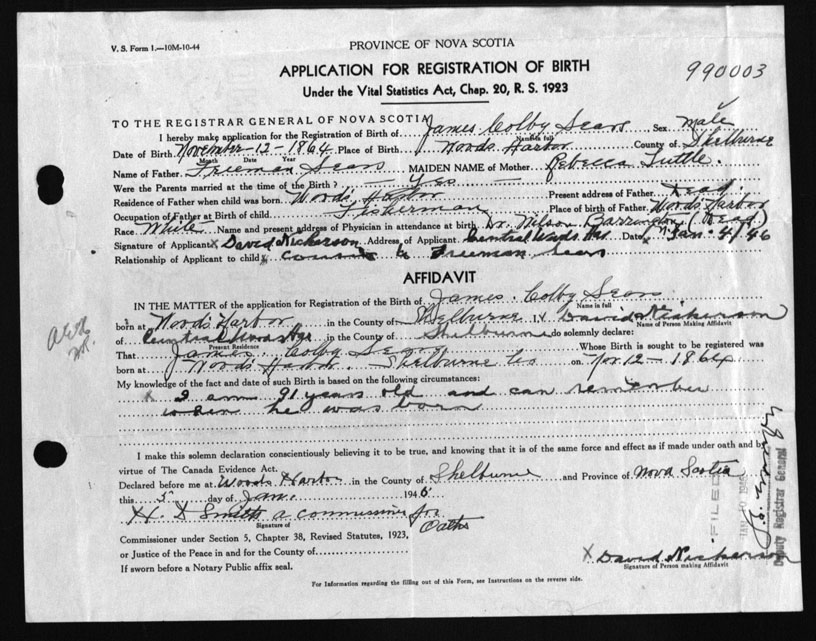 V. S. Form 1.—10M-10-44
PROVINCE OF NOVA SCOTIA
990003
APPLICATION FOR REGISTRATION OF BIRTH
Under the Vital Statistics Act, Chap. 20, R. S. 1923
TO THE REGISTRAR GENERAL OF NOVA SCOTIA
I hereby make application for the Registration of Birth of James Colby Sears Sex Male
Name in full
Date of Birth November-12-1864 Place of Birth Woods Harbor County of Shelburne
Month Date Year
Name of Father Freeman Sears MAIDEN NAME of Mother Rebecca Tuttle.
Were the Parents married at the time of the Birth? Yes
Residence of Father when child was born Woods Harbor Present address of Father Dead.
Occupation of Father at Birth of child Fisherman Place of birth of Father Woods Harbor
Race White Name and present address of Physician in attendance at birth Dr. Wilson Barrington (Dead)
Signature of Applicant X David Nickerson Address of Applicant Central Woods Har Date Jan. 4/46
Relationship of Applicant to child cousin to Freeman Sears
AFFIDAVIT
IN THE MATTER of the application for Registration of the Birth of James Colby Sears
Name in full
born at Woods Harbor in the County of Shelburne I, David Nickerson
Name of Person Making Affidavit
of Central Woods Har in the County of Shelburne do solemnly declare:
Present Residence
That James Colby Sears Whose Birth is sought to be registered was
born at Woods Harbor Shelburne Co on Nov. 12-1864
My knowledge of the fact and date of such Birth is based on the following circumstances:
X I am 91 years old and can remember
when he was born
I make this solemn declaration conscientiously believing it to be true, and knowing that it is of the same force and effect as if made under oath and by
virtue of The Canada Evidence Act.
Declared before me at Woods Harbor in the County of Shelburne and Province of Nova Scotia
this 5 day of Jan. 1946
H. D Smith a commissioner for Oaths
Signature of
Commissioner under Section 5, Chapter 38, Revised Statutes, 1923,
or Justice of the Peace in and for the County of
If sworn before a Notary Public affix seal.
X David Nickerson
Signature of Person making Affidavit
For Information regarding the filling out of this Form, see Instructions on the reverse side.
FILED
Deputy Registrar General